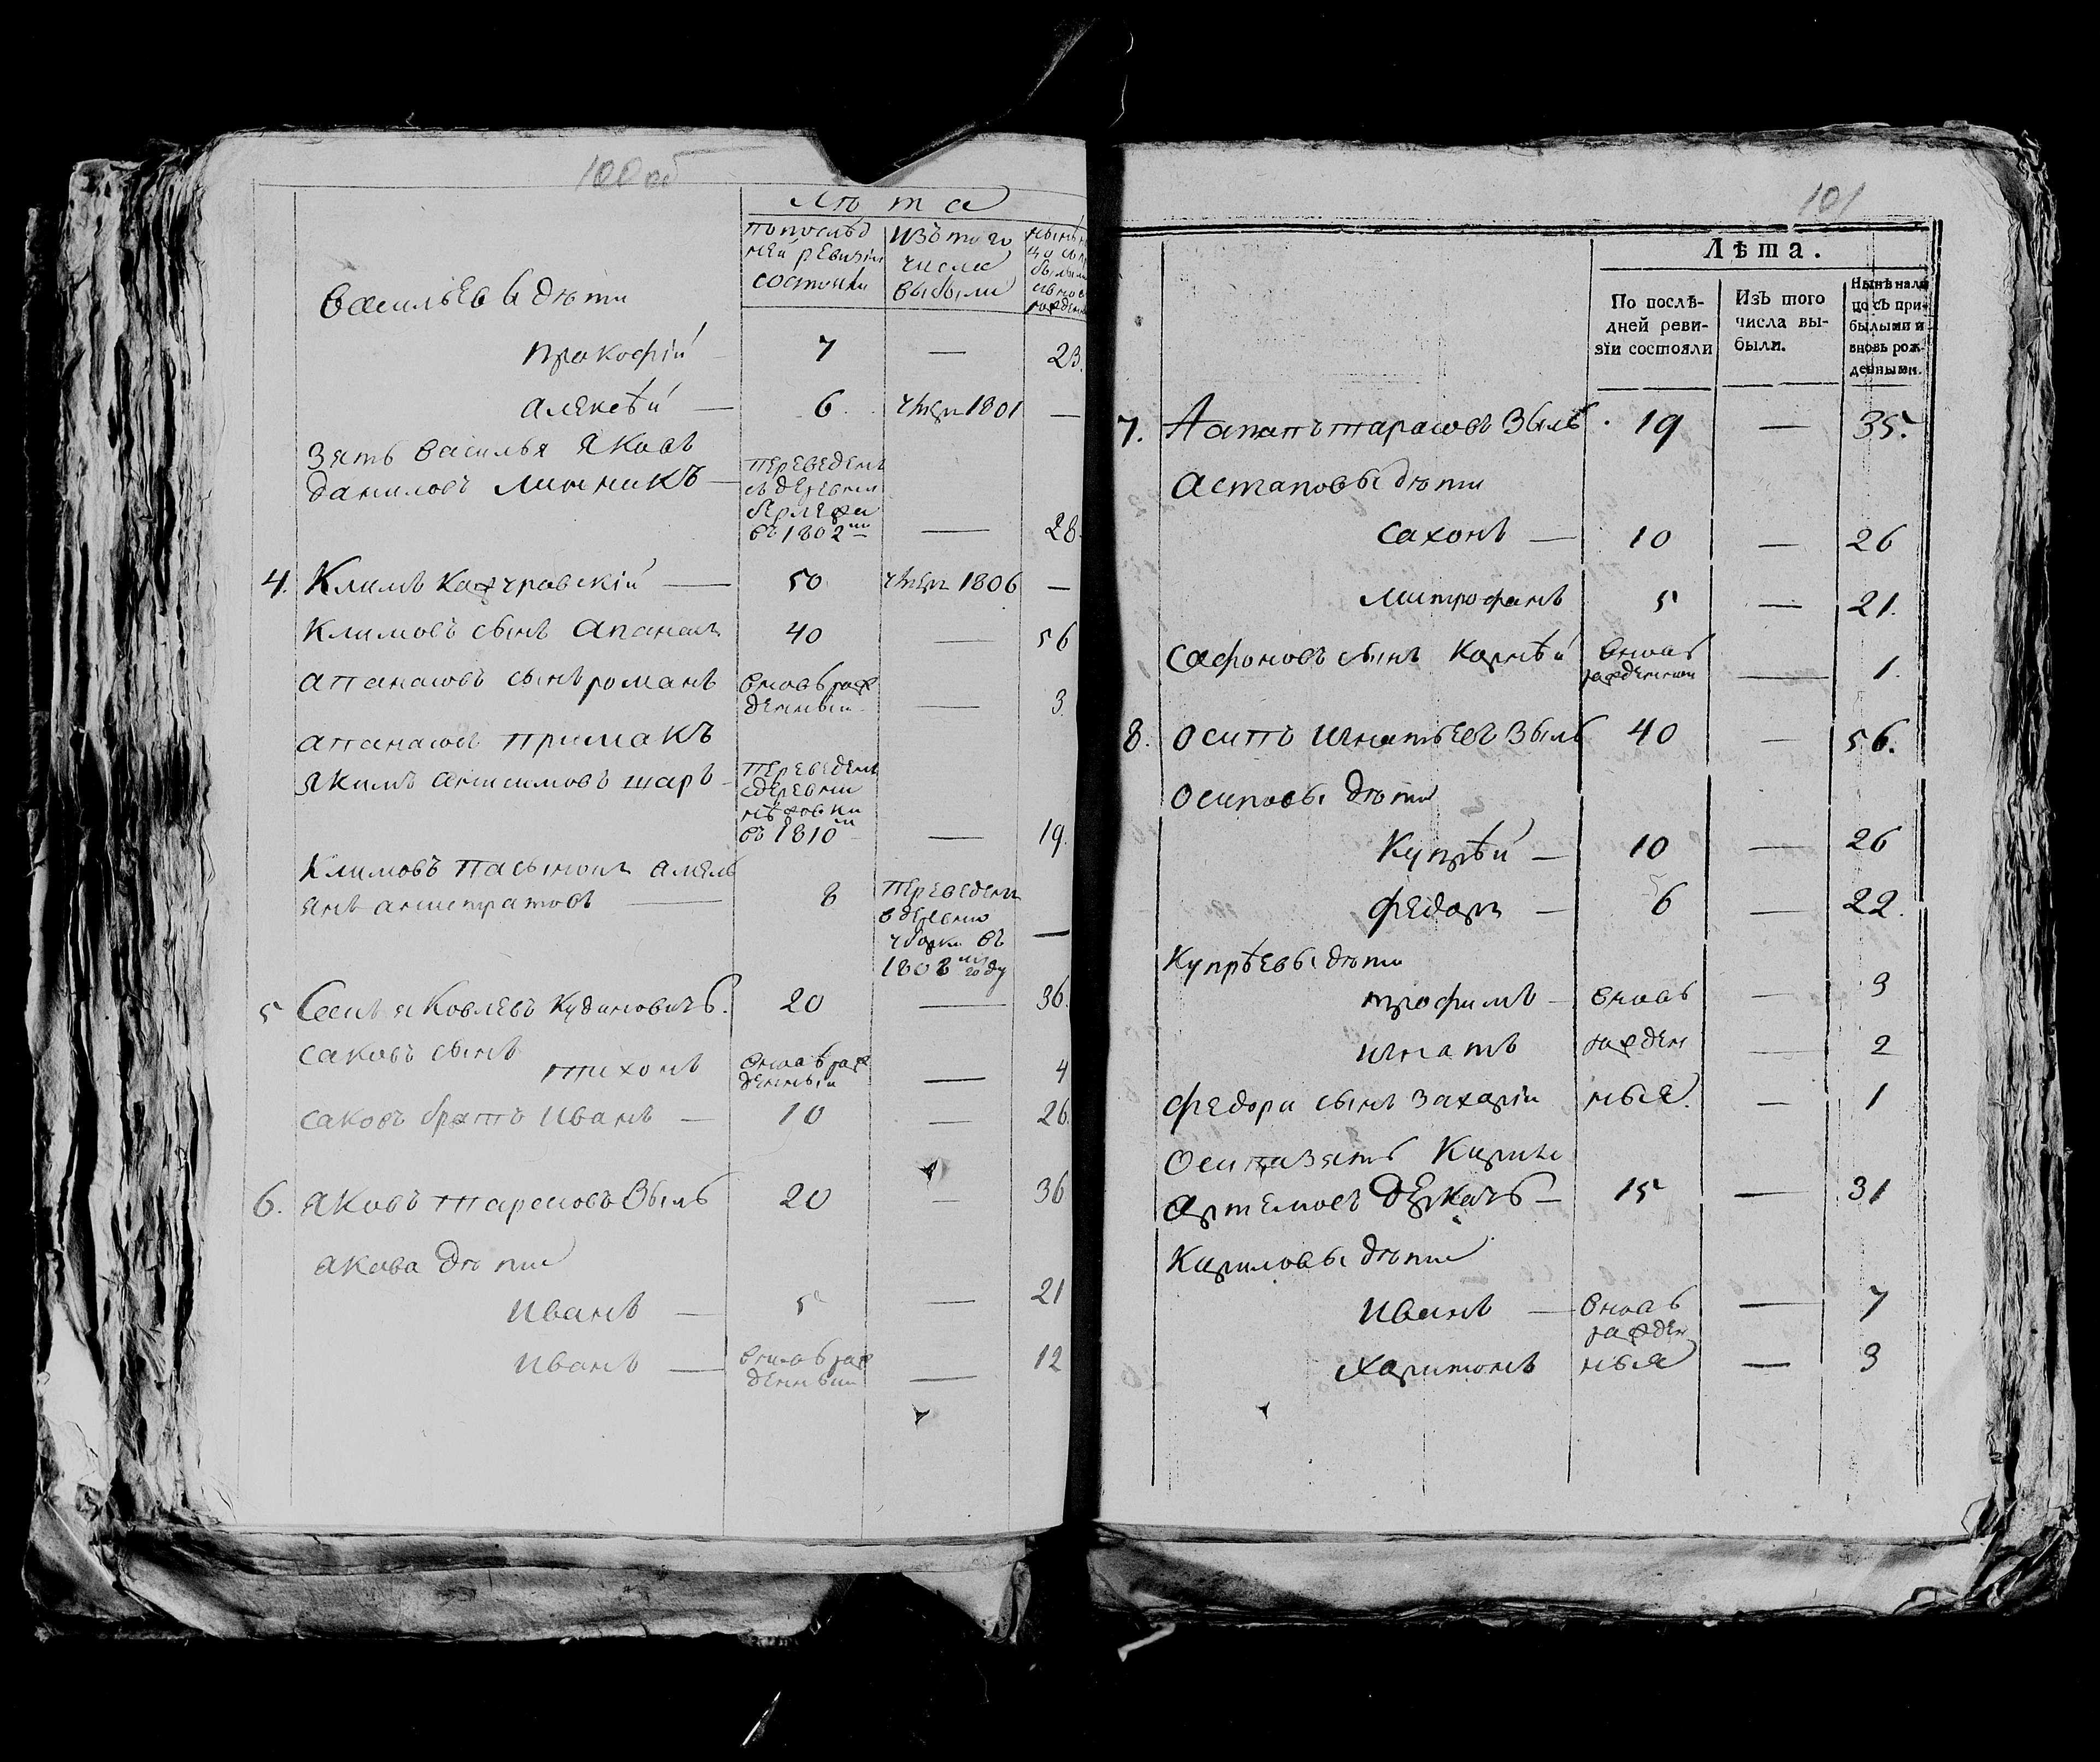 100 об
Лѣта
По послѣд
ней ревизіи
состояли
Изъ того
числа
выбыли
Васильевы дѣти
Прокофій 7 — 23.
Алексѣй — 6. умеръ 1801 —
Зять Василья Яковъ
Даниловъ Линникъ — переведенъ
съ деревни
въ 1802 — 28
4. Климъ — 50 умеръ 1806 —
Климовъ сынъ Апанасъ 40 — 56
Апанасовъ сынъ Романъ вновь рож
денный — 3.
Апанасовъ примакъ
Якимъ Анисимовъ Шаръ — переведенъ
съ деревни
въ 1810 — 19.
Климовъ пасынокъ Амель
янъ — 8 переведенъ
в деревню
въ —
1808 году
5 Сакъ Яковлевъ Кудиновичь. 20 — 36.
Саковъ сынъ
Тихонъ вновь рож
денный — 4
Саковъ братъ Иванъ — 10 — 26.
6. Яковъ Тарасовъ Зыль 20 — 36
Якова дѣти
Иванъ — 5 — 21
Иванъ — вновь рож
денный — 12
101
Лѣта.
По послѣ-
дней реви-
зіи состояли
Изъ того
числа вы-
были.
Нынѣ нали
цо съ при-
былыми и
вновь рож-
денными.
7. Тарасовъ Зыль 19 — 35.
Астаповы дѣти
Сахонъ — 10 — 26
Митрофанъ 5 — 21.
Сафоновъ сынъ Корнѣй вновь
рожденный — 1.
8. Осипъ Игнатьевъ Зыль 40 — 56.
Осиповы дѣти
Купрѣй — 10 — 26
Федоръ — 6 — 22.
Купрѣевы дѣти
Трофимъ — вновь — 3
Игнатъ рожден — 2
Федора сынъ Захарій ныя. — 1
Осипа зять Кирило
Артемовъ Деркачь — 15 — 31
Кириловы дѣти
Иванъ — вновь — 7
рожден
Харитонъ ныя — 3